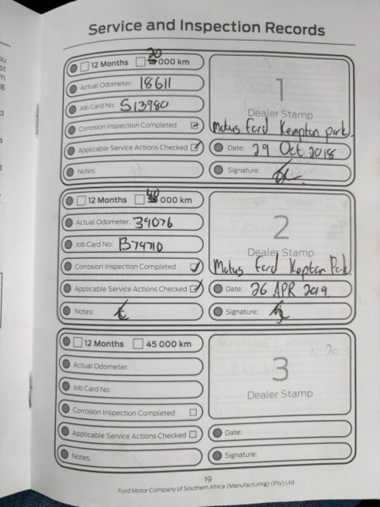 Service and Inspection Records
12 Months 20 000 km
Actual Odometer: 18611
Job Card No: S13980
Corrosion Inspection Completed
Applicable Service Actions Checked
Notes:
1
Dealer Stamp
Motus Ford Kempton park.
Date: 29 Oct 2018
Signature:
12 Months 000 km
Actual Odometer: 39076
Job Card No:
Corrosion Inspection Completed
Applicable Service Actions Checked
Notes:
2
Dealer Stamp
Motus Ford Kempton Park
Date: 26 APR 2019.
Signature:
12 Months 45 000 km
Actual Odometer:
Job Card No:
Corrosion Inspection Completed
Applicable Service Actions Checked
Notes:
3
Dealer Stamp
Date:
Signature:
19
Ford Motor Company of Southern Africa (Manufacturing) (Pty) Ltd